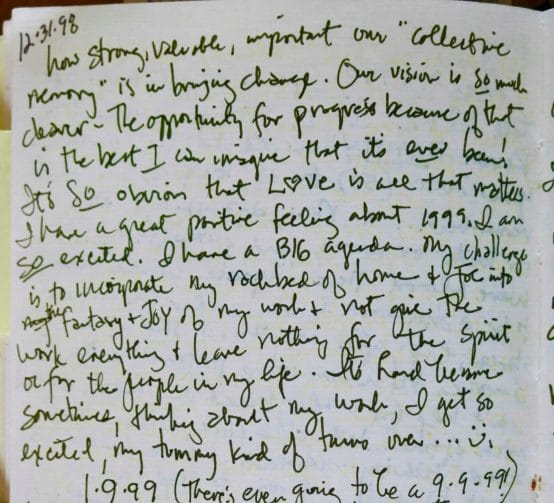 12.31.98
how strong, valuable, important our "collective
memory" is in bringing change. Our vision is so much
clearer - The opportunity for progress because of that
is the best I can imagine that its ever been!
It's So obvious that LOVE is all that matters.
I have a great positive feeling about 1999. I am
so excited. I have a BIG agenda. My challenge
is to incorporate my rockbed of home + Joe into
the fantasy + JOY of my work + not give the
work everything + leave nothing for the spirit
or for the people in my life. Its hard because
sometimes, thinking about my work, I get so
excited, my tummy kind of turns over...
1.9.99 (There's even going to be a 9.9.99!)